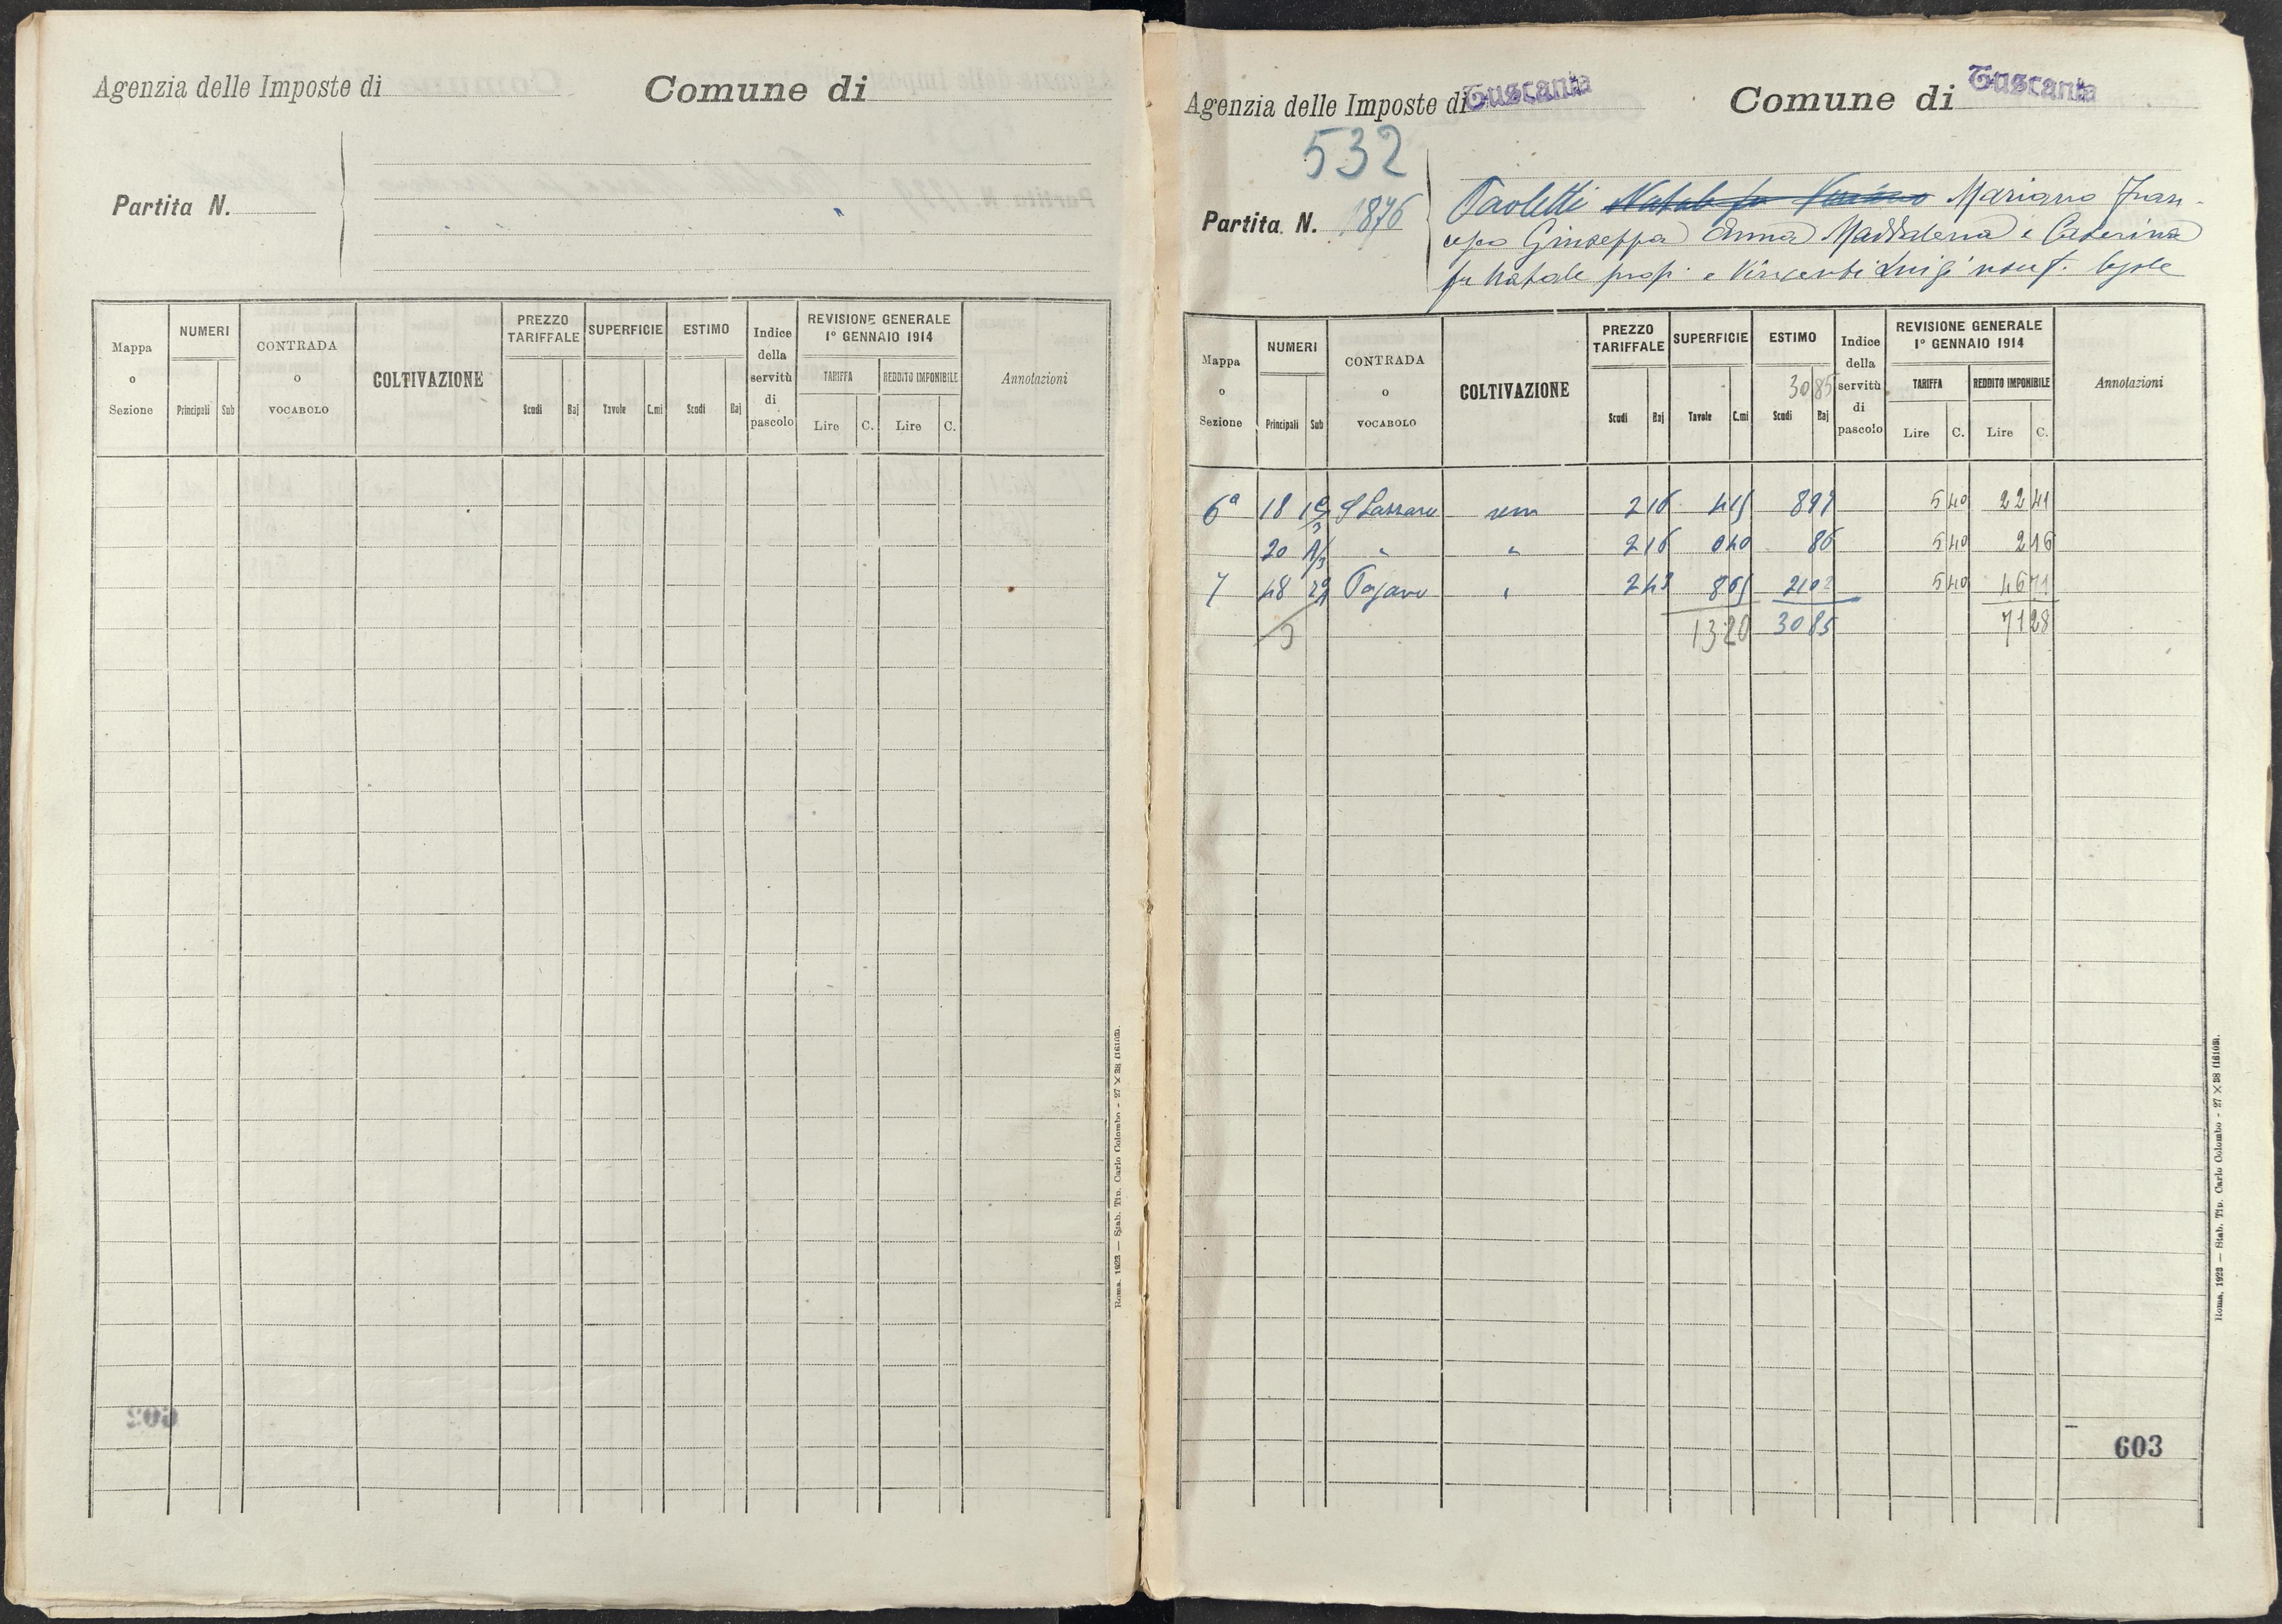 Agenzia delle Imposte di
Comune di
Partita N.
Mappa o Sezione
NUMERI
Principali Sub
CONTRADA o VOCABOLO
COLTIVAZIONE
PREZZO TARIFFALE
Scudi Baj
SUPERFICIE
Tavole C.mi
ESTIMO
Scudi Baj
Indice della servitù di pascolo
REVISIONE GENERALE
1° GENNAIO 1914
TARIFFA
REDDITO IMPONIBILE
Lire C. Lire C.
Annotazioni
Roma, 1923 — Stab. Tip. Carlo Colombo - 27 × 38 (16105).
Agenzia delle Imposte di Tuscania
Comune di Tuscania
532
Partita N. 1876
Paoletti Natale fu Mariano Fran-
cesco Giuseppa Anna Maddalena e Caterina
fu Natale prop: e Vincenti Luigi usuf.
Mappa o Sezione
NUMERI
Principali Sub
CONTRADA o VOCABOLO
COLTIVAZIONE
PREZZO TARIFFALE
Scudi Baj
SUPERFICIE
Tavole C.mi
ESTIMO
3085
Scudi Baj
Indice della servitù di pascolo
REVISIONE GENERALE
1° GENNAIO 1914
TARIFFA
REDDITO IMPONIBILE
Lire C. Lire C.
Annotazioni
6ª 18 S Lazzaro sem 216 415 897 540 2241
20 1/3 " " 216 040 86 540 216
7 48 Pajano " 243 865 2102 540 4671
3 1320 3085 7128
603
Roma, 1923 — Stab. Tip. Carlo Colombo - 27 × 38 (16105).